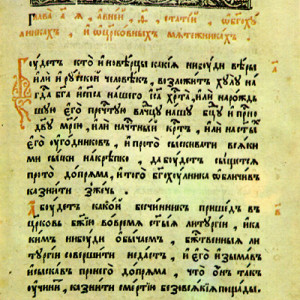 Глава а҃. а в ней ѳ҃ статей о бг҃оху
лникахъ, и о церковныхъ мятежникахъ
Бꙋдетъ кто иновѣрцы какія нибꙋди вѣры
или и рꙋской человѣкъ, возложитъ хꙋлꙋ на
гд҇а бг҃а и сп҃са нашего іс҃а хрⷭ҇та, или на рождь
шꙋю его прчⷭ҇тꙋю влⷣчцꙋ нашꙋ бцⷣꙋ и присно
дв҃ꙋ мр҃ію, или на чтⷭ҇ный крⷭ҇тъ, или на ст҃ы
его ꙋгодниковъ, и про то сыскивати всяки
ми сыски накрѣпко, да бꙋдетъ сыщется
про то допряма, и того бг҃охꙋлника обличивъ
казнити зжечь.
А бꙋдетъ какой безчинникъ пришедъ въ
церковь бж҃ію во время ст҃ыя литꙋргіи, и ка
кимъ нибꙋди обычаемъ, бжⷭ҇твенныя ли
тꙋргіи совершити не дастъ, и его изымавъ
и сыскавъ про него допряма, что онъ такъ
ꙋчинитъ, казнити смертію безо всякія пощады.